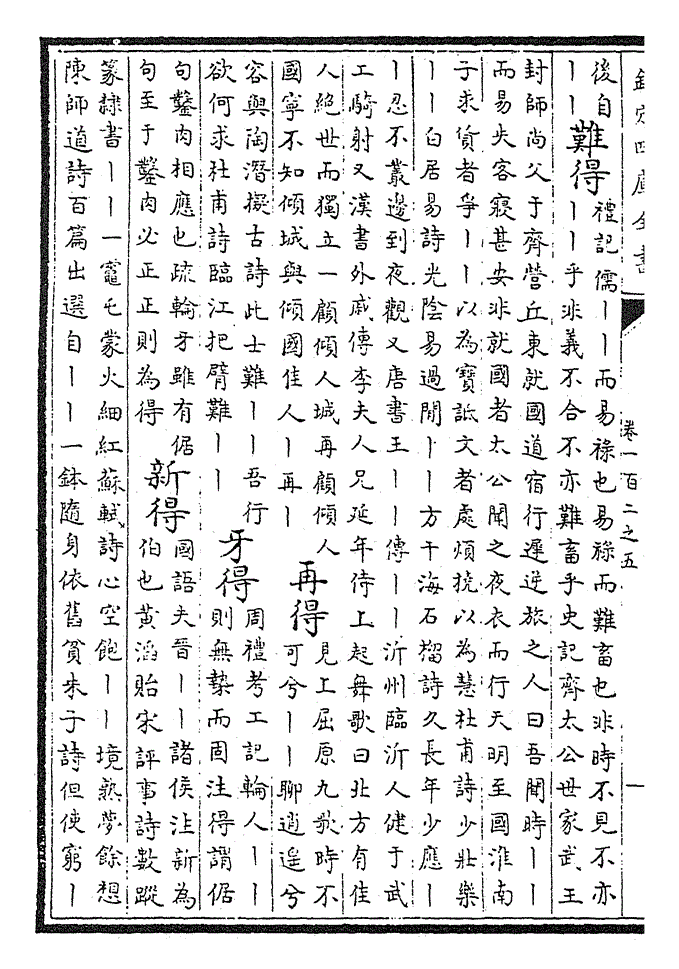 欽定四庫全書 卷一百二之五 一
後自
丨丨
難得
禮記儒丨丨而易祿也易祿而難畜也非時不見不亦
丨丨乎非義不合不亦難畜乎史記齊太公世家武王
封師尚父于齊營丘東就國道宿行遲逆旅之人曰吾聞時丨丨
而易失客寢甚安非就國者太公聞之夜衣而行天明至國淮南
子求貨者爭丨丨以為寶詆文者處煩撓以為慧杜甫詩少壯樂
丨丨白居易詩光陰易過閒丨丨方干海石榴詩久長年少應丨
丨忍不叢邊到夜觀又唐書王丨丨傳丨丨沂州臨沂人健于武
工騎射又漢書外戚傳李夫人兄延年侍上起舞歌曰北方有佳
人絕世而獨立一顧傾人城再顧傾人
國寧不知傾城與傾國佳人丨再丨
再得
見上屈原九歌時不
可兮丨丨聊逍遥兮
容與陶潛擬古詩此士難丨丨吾行
欲何求杜甫詩臨江把臂難丨丨
牙得
周禮考工記輪人丨丨
則無槷而固注得謂倨
句鑿内相應也疏輪牙雖有倨
句至于鑿内必正正則為得
新得
國語夫晉丨丨諸侯注新為
伯也黄滔貽宋評事詩數蹤
篆隸書丨丨一竈屯蒙火細紅蘇軾詩心空飽丨丨境熟夢餘想
陳師道詩百篇出選自丨丨一鉢隨身依舊貧朱子詩但使窮丨